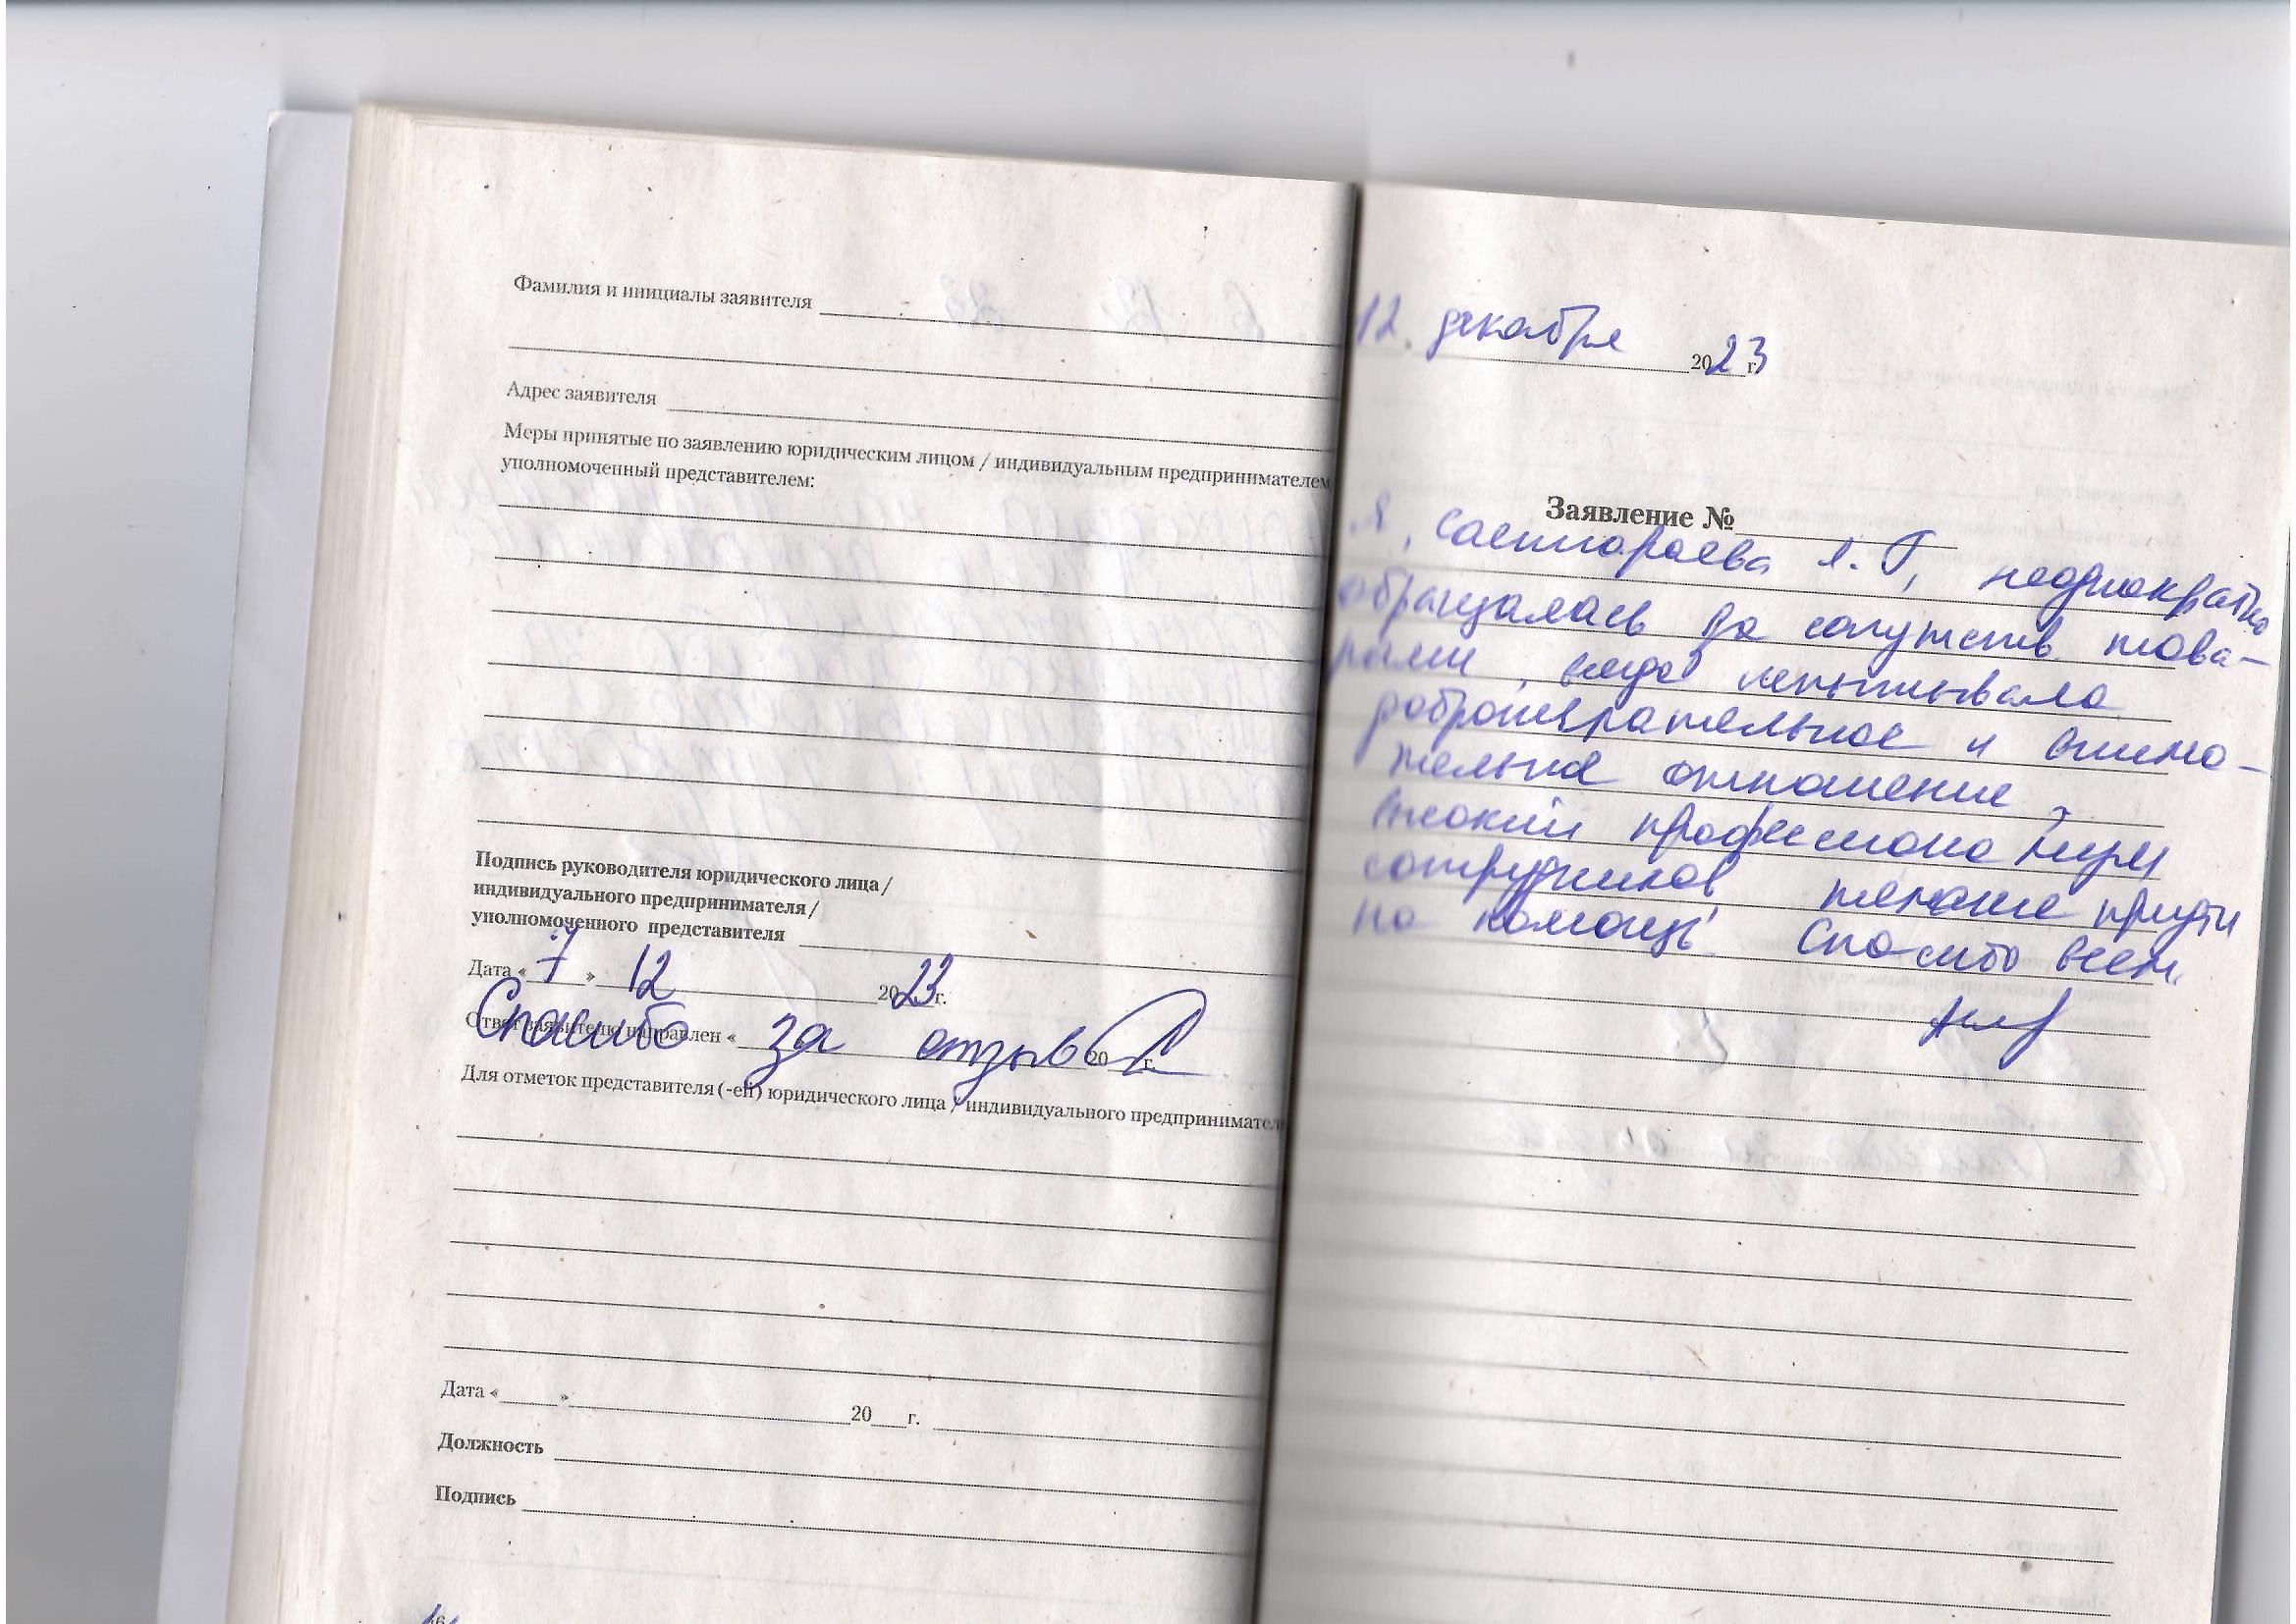 Фамилия и инициалы заявителя
Адрес заявителя
Меры принятые по заявлению юридическим лицом / индивидуальным предпринимателем,
уполномоченный представителем:
Подпись руководителя юридического лица /
индивидуального предпринимателя /
уполномоченного представителя
Дата « 7 » 12 2023 г.
Ответ заявителю направлен « 20 г.
Спасибо за отзыв
Для отметок представителя (-ей) юридического лица / индивидуального предпринимател
Дата « » 20 г.
Должность
Подпись
12. декабря 2023 г.
Заявление №
Я, Я. Г, неоднократно
обращалась за сопутств. това-
рами, всегда испытывала
доброжелательное и внима-
тельное отношение,
высокий
сотрудников желание придти
на помощь! Спасибо всем